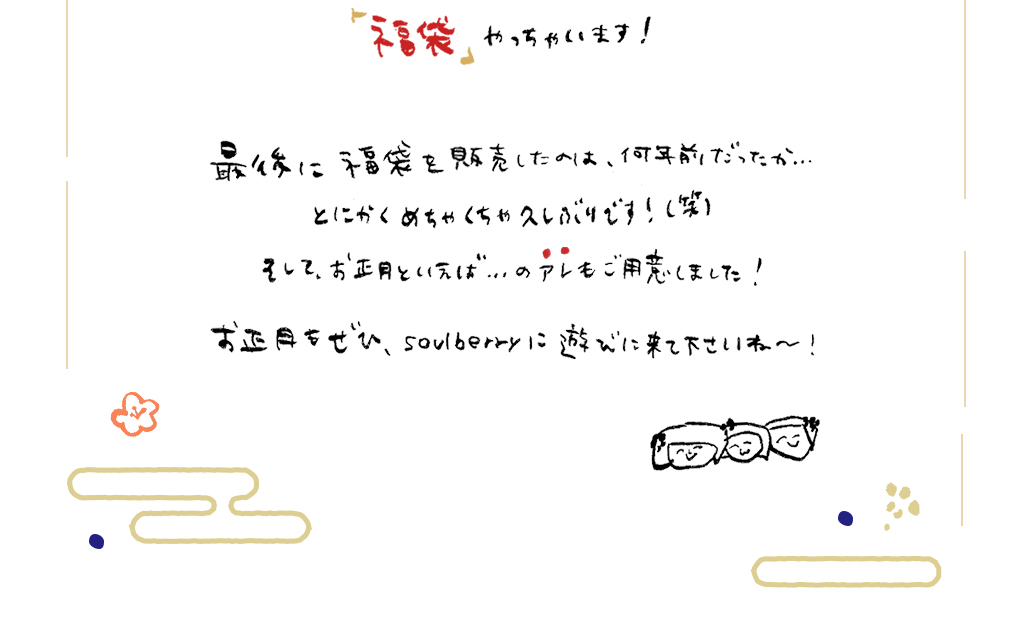 「福袋」やっちゃいます!
最後に福袋を販売したのは、何年前だったか…
とにかくめちゃくちゃ久しぶりです!(笑)
そして、お正月といえば…のアレもご用意しました!
お正月もぜひ、soulberryに遊びに来て下さいね〜!